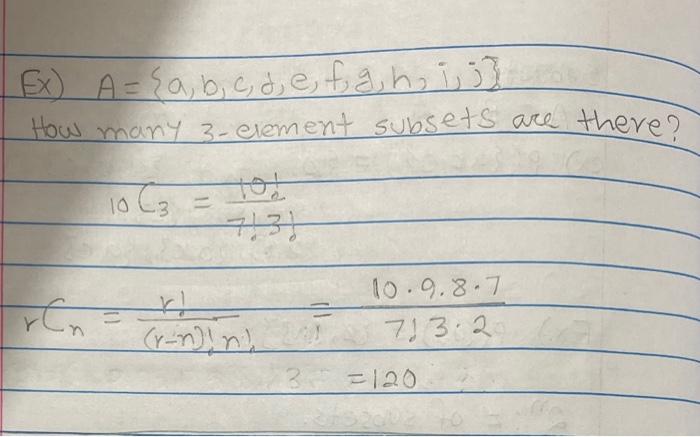 Ex) A = {a, b, c, d, e, f, g, h, i, j}
How many 3-element subsets are there?
10C3 = 10! / 7!3!
rCn = r! / (r-n)! n! = 10·9·8·7 / 7! 3·2
= 120